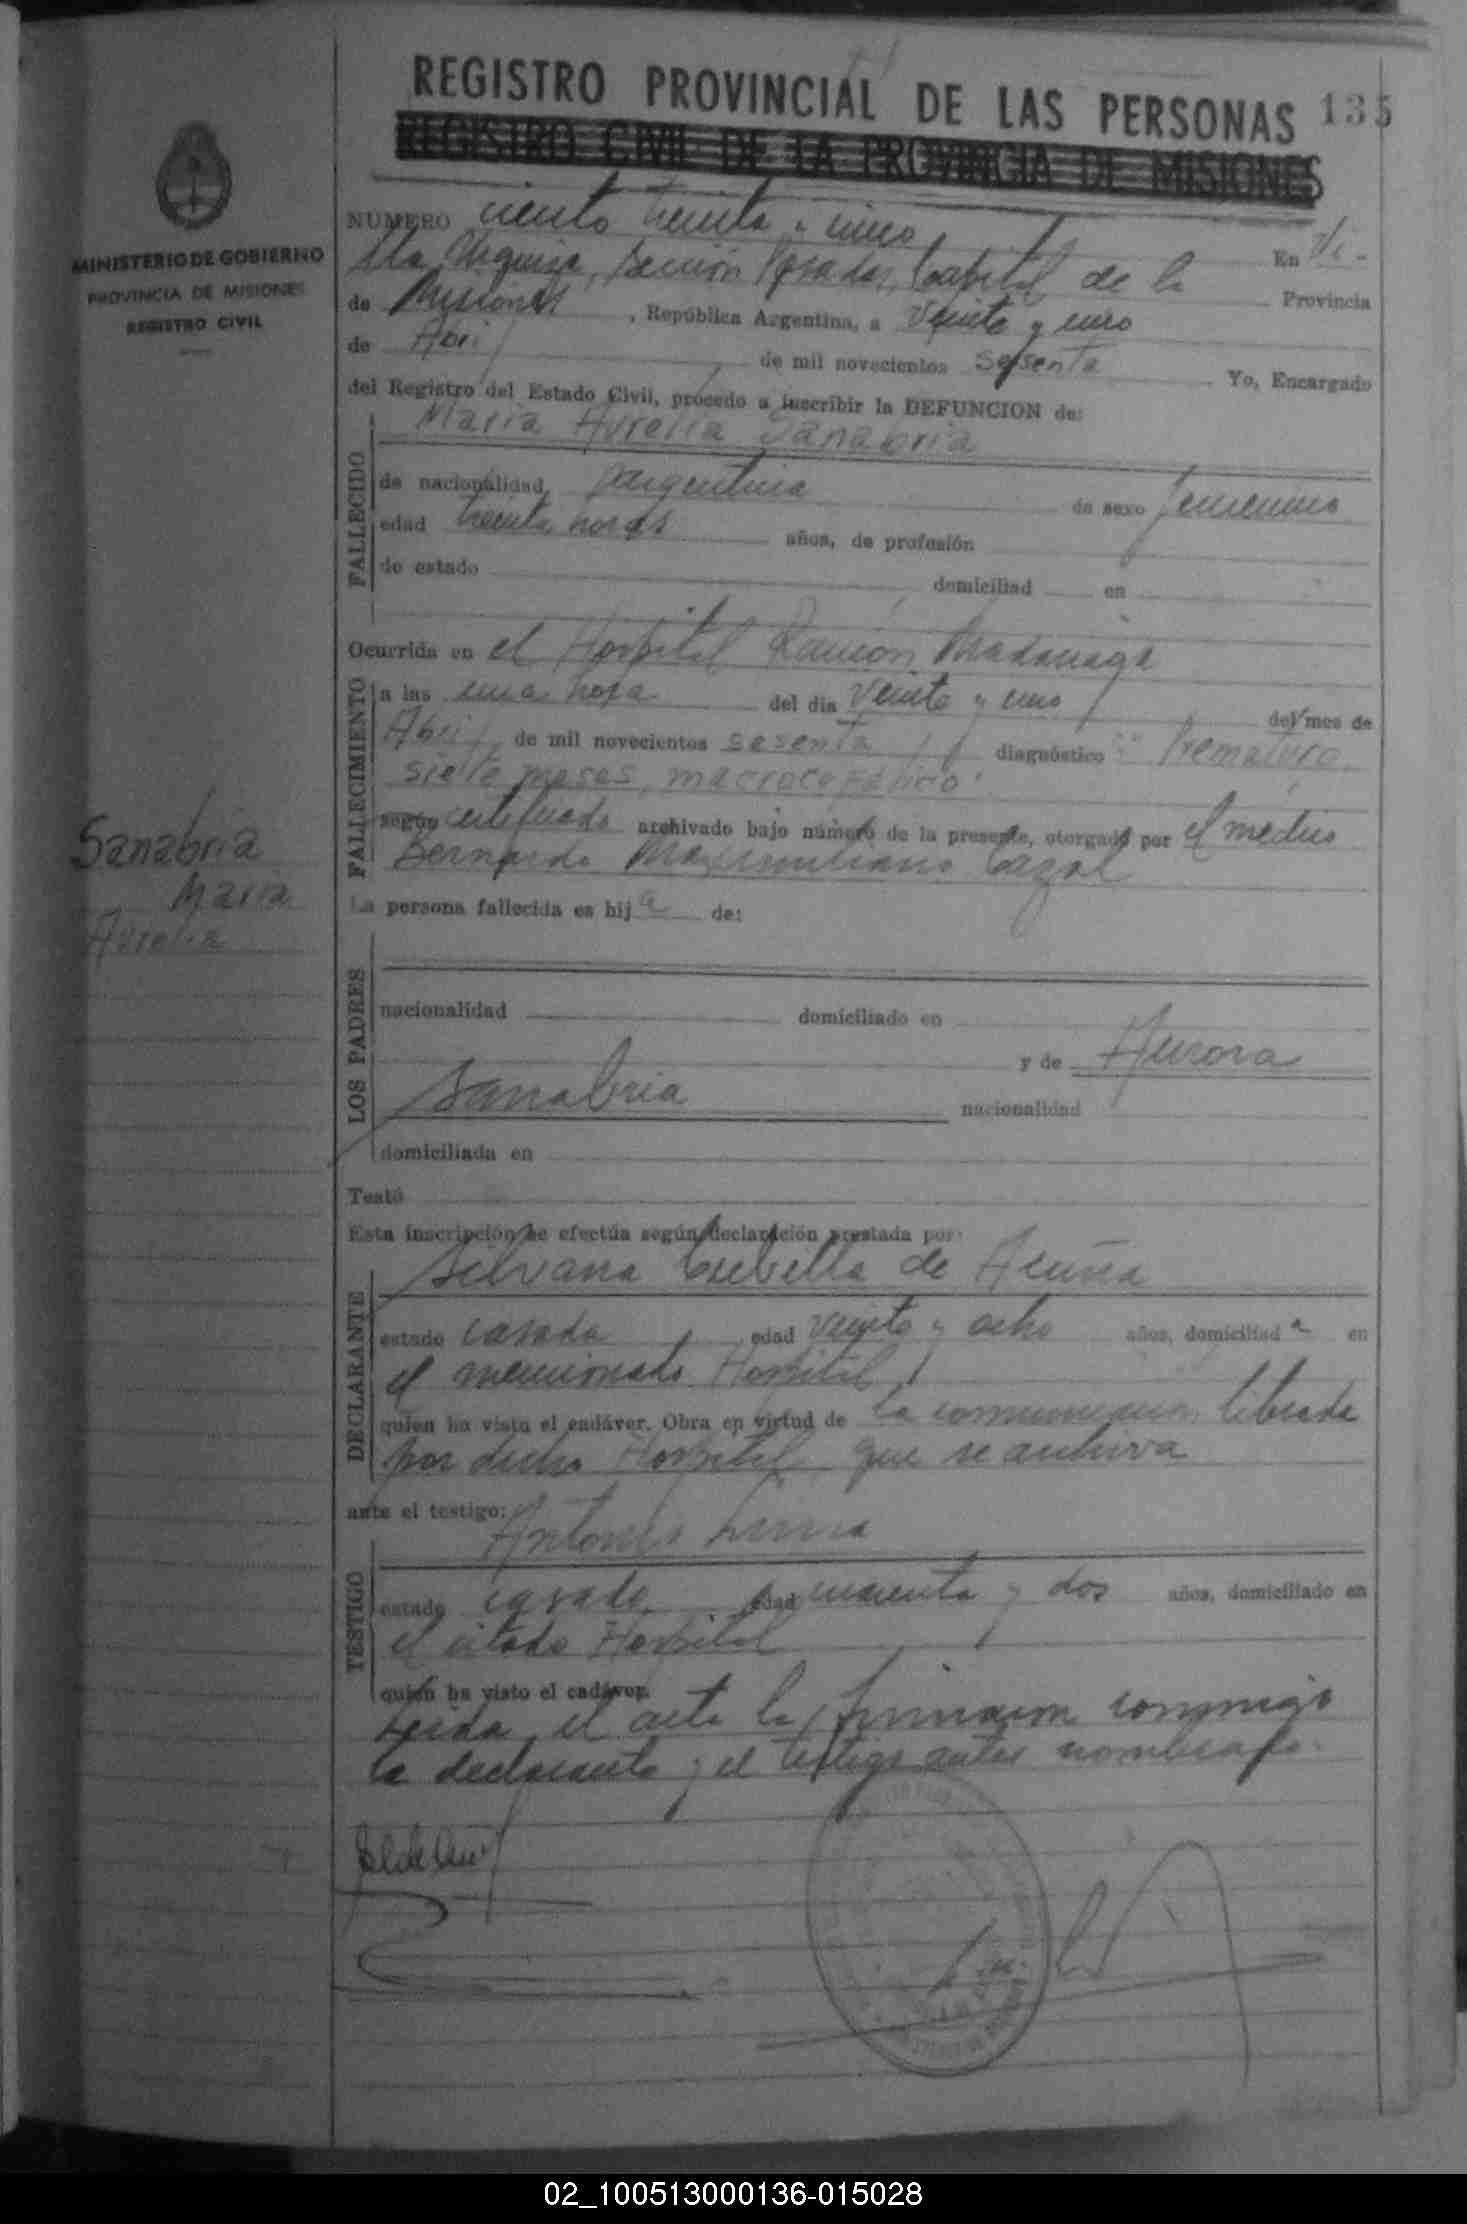 REGISTRO PROVINCIAL DE LAS PERSONAS 135
REGISTRO CIVIL DE LA PROVINCIA DE MISIONES
MINISTERIO DE GOBIERNO
PROVINCIA DE MISIONES
REGISTRO CIVIL
NÚMERO ciento treinta y cinco En Vi-
lla Urquiza, Sección Posadas, Capital de la Provincia
de Misiones, República Argentina, a veinte y uno
de Abril de mil novecientos sesenta Yo, Encargado
del Registro del Estado Civil, procedo a inscribir la DEFUNCION de:
Maria Aurelia Sanabria
FALLECIDO
de nacionalidad argentina de sexo femenino
edad treinta horas años, de profesión
de estado domiciliad en
Ocurrida en el Hospital Ramón Madariaga
FALLECIMIENTO
a las una hora del dia veinte y uno del mes de
Abril de mil novecientos sesenta diagnóstico: "Prematura,
siete meses, macrocefálico"
según certificado archivado bajo número de la presente, otorgado por el médico
Bernardo Maximiliano Cazal
Sanabria
Maria
Aurelia
La persona fallecida es hija de:
LOS PADRES
nacionalidad domiciliado en
y de Aurora
Sanabria nacionalidad
domiciliada en
Testó
Esta inscripción se efectúa según declaración prestada por:
Silvana Cubilla de Acuña
DECLARANTE
estado casada edad veinte y ocho años, domiciliada en
el mencionado Hospital
quien ha visto el cadáver. Obra en virtud de la comunicación librada
por dicho Hospital que se archiva
ante el testigo:
Antonio
TESTIGO
estado casado edad cuarenta y dos años, domiciliado en
el citado Hospital
quien ha visto el cadáver.
Leida el acta la firmaron conmigo
la declarante y el testigo antes nombrado.
02_100513000136-015028